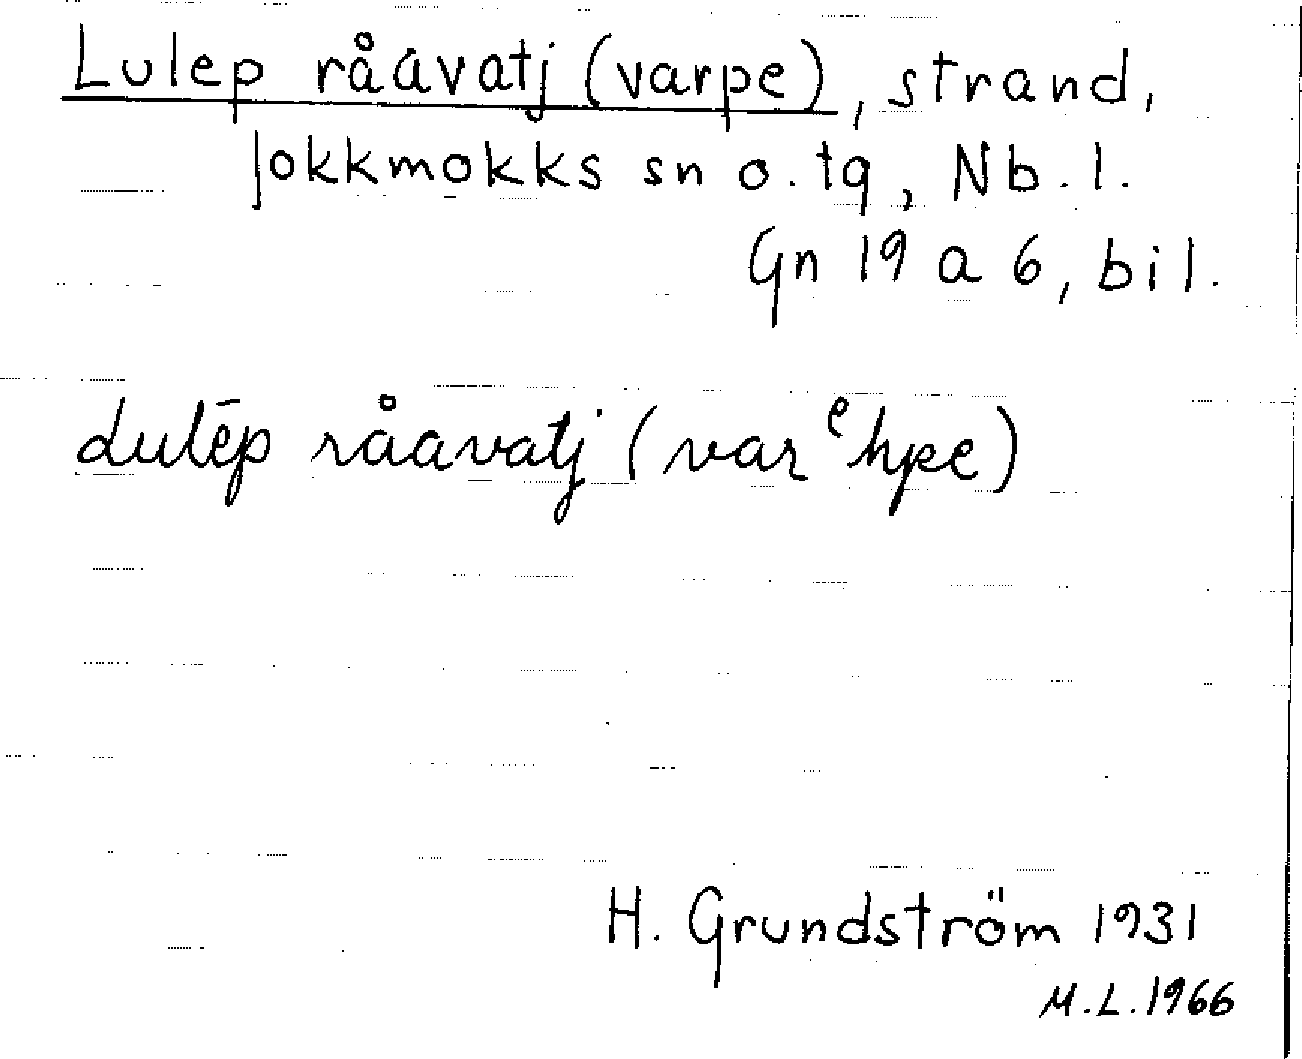 Lulep rååvatj (varpe), strand,
Jokkmokks sn o. tg, Nb. l.
Gn 19 a 6, bil.
Lulēp råavatj (varᵉhpe)
H. Grundström 1931
M.L. 1966